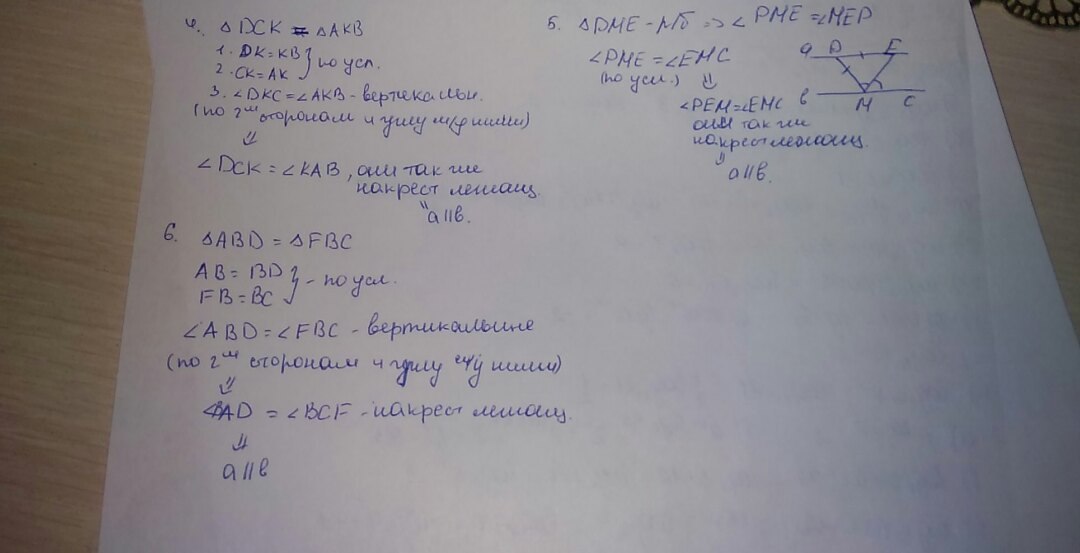 4. △DCK = △AKB
1. DK=KB } по усл.
2. CK=AK
3. ∠DKC=∠AKB-вертикальн.
(по 2ум сторонам и углу м/д ними)
⇓
∠DCK = ∠KAB, они так же
накрест лежащ.
⇓
a||b.
5. △DME - р/б => ∠ PME =∠MEP
∠PME=∠EMC
(по усл.) ⇓
∠PEM=∠EMC
они так же
накрест лежащ.
⇓
a||b.
a D E
b M C
6. △ABD = △FBC
AB= BD } - по усл.
FB=BC
∠ABD=∠FBC - вертикальные
(по 2ум сторонам и углу ними)
⇓
= ∠BCF -накрест лежащ.
⇓
a||b